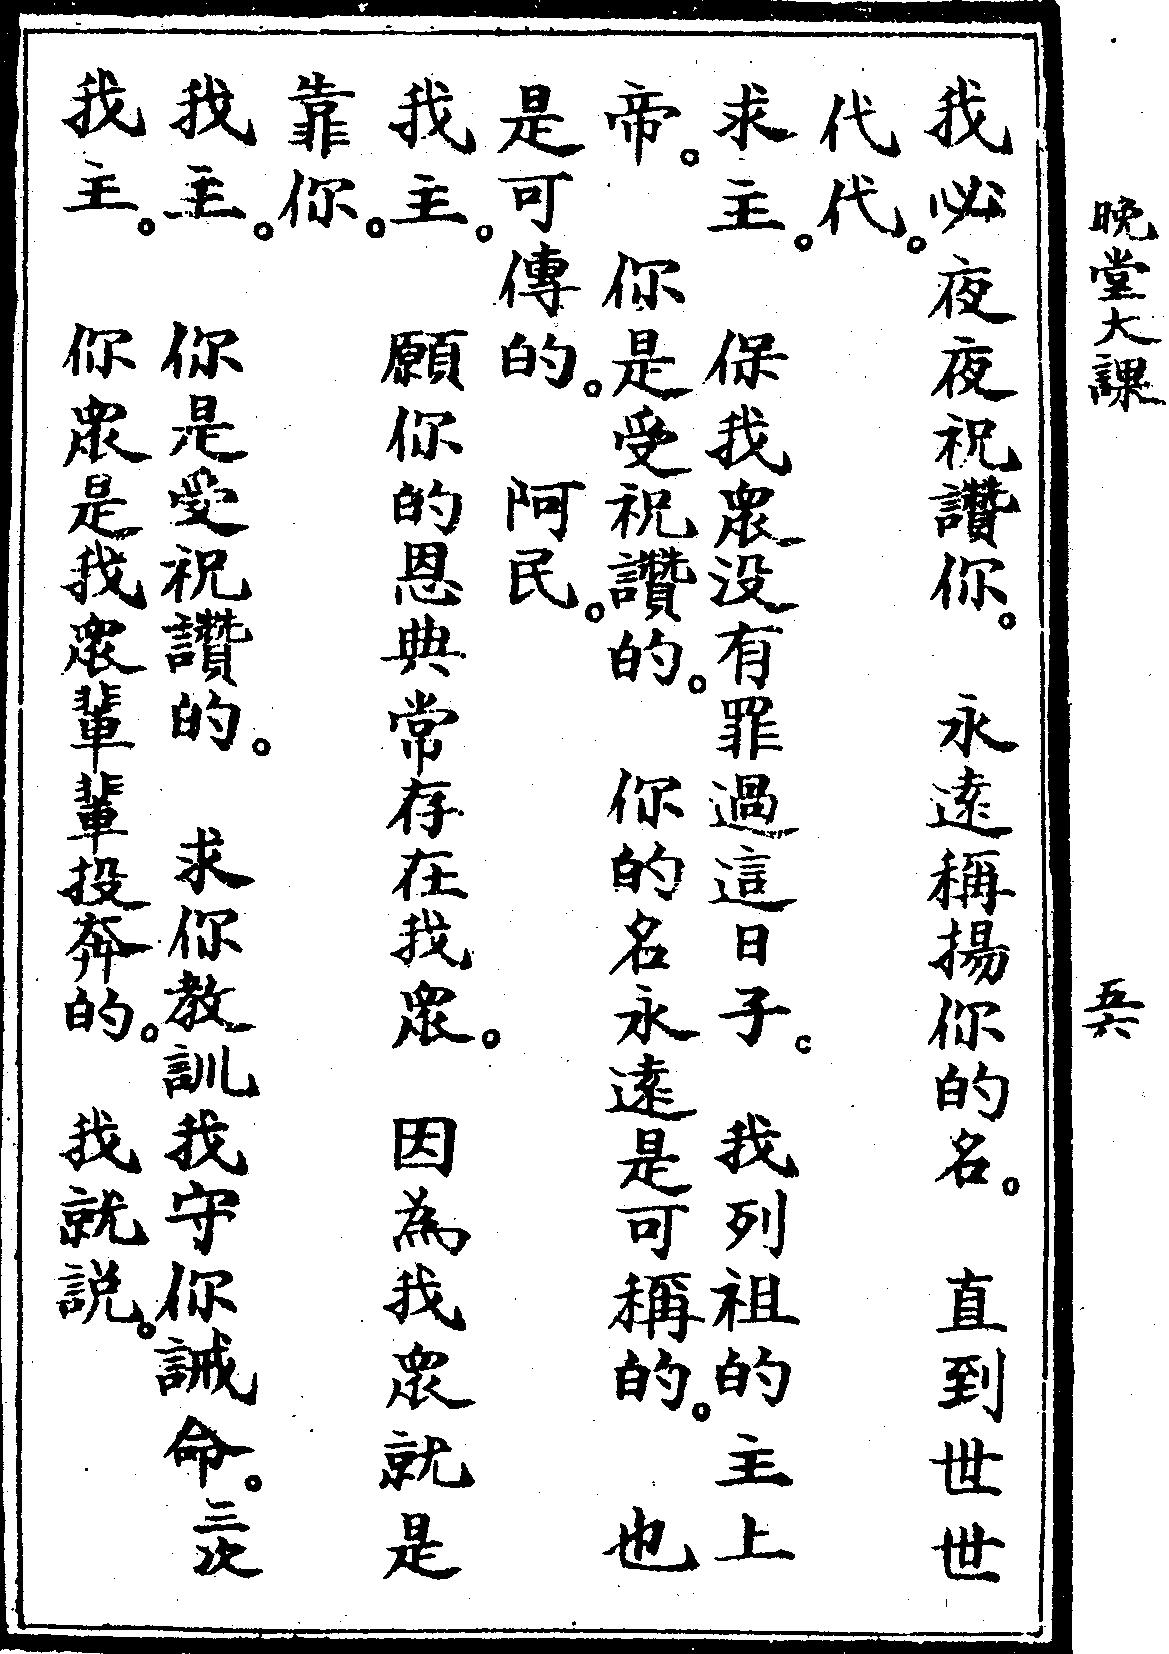 晚堂大課
五六
我必夜夜祝讚你。　永遠稱揚你的名。　直到世世
代代。
求主。　保我衆没有罪過這日子。　我列祖的主上
帝。　你是受祝讚的。　你的名永遠是可稱的。　也
是可傳的。　阿民。
我主。　願你的恩典常存在我衆。　因為我衆就是
靠你。
我主。　你是受祝讚的。　求你教訓我守你誡命。三次
我主。　你衆是我衆輩輩投奔的。　我就説。